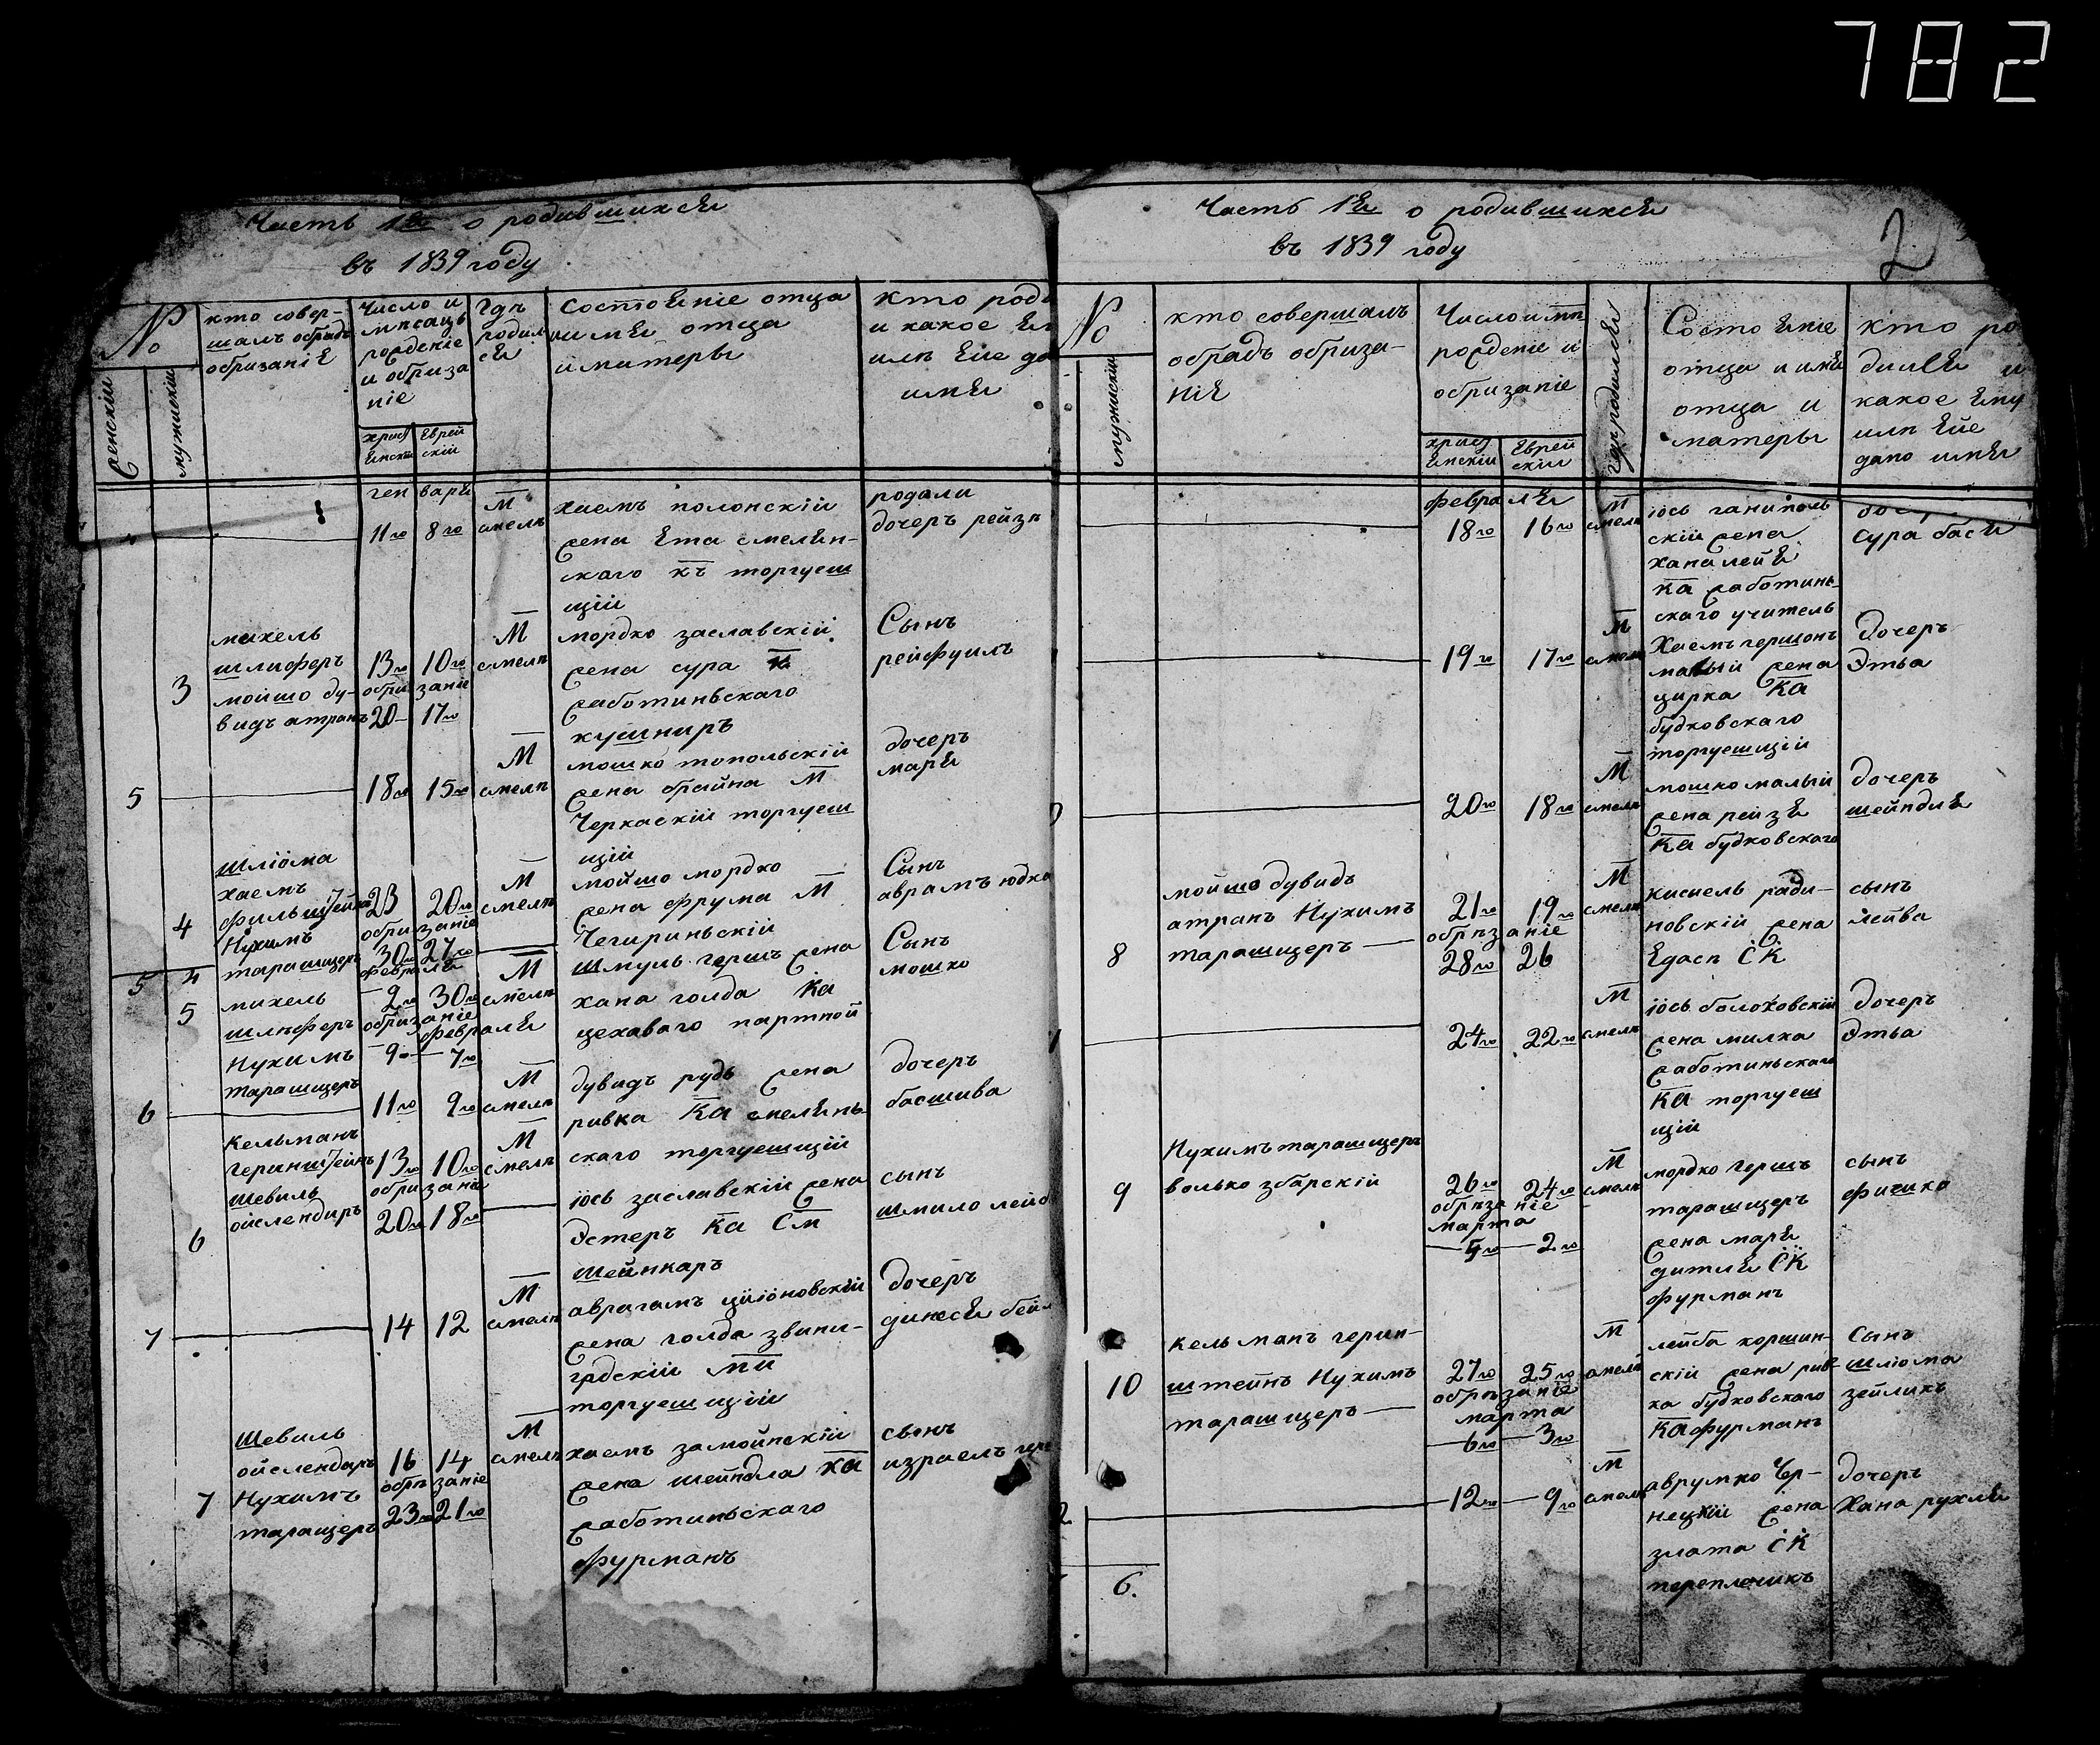 782
Часть 1я о родившихся
въ 1839 году
№
женскій
мужискій
кто совер-
шалъ обрадъ
обризаніе
Число и
мпсацъ
рожденіе
и обриза
ніе
христ
еански
Еврей
скій
Гдп
родил
ся
Состояніе отца
имя отца
и матеры
кто роди
и какое ем
илп еие да
имя
генваря
11го 8го
М
смелп
хаемъ полонскій
жена ета смелян-
скаго къ торгуеш
щій
родали
дочеръ рейзп
3
михель
шлиферъ
мойшо ду-
видъ атранъ
13го 10го
обризаніе
20 17го
М
смелп
мордко заславскій
жена сура К
жаботиньскаго
кушниръ
Сынъ
рейфуилъ
5
18го 15го
М
смелп
мошко топольскій
жена брайна М
Черкаскій торгуеш
щій
дочеръ
маря
4
шліома
хаемъ
филыштейнъ
Нухимъ
таращицеръ
23 20го
обризаніе
30го 27го
М
смелп
мойшо мордко
жена фрума М
Чегириньскій
Сынъ
аврамъ юдко
5 4
5
михель
шлпферъ
Нухимъ
таращщеръ
февраля
2го 30го
обризаніе
февраля
9 7го
М
смелп
шмуль гершъ жена
хана голда Ка
цехаваго партной
Сынъ
мошко
6
11го 9го
М
смелп
дувидъ рудь жена
ривка Ка смелянь
скаго торгуешщій
дочеръ
басшива
6
Кельманъ
геринштейнъ
шевиль
ойслендиръ
13го 10го
обризаніе
20го 18го
М
смелп
іось заславскій жена
Эстеръ Ка См
шейнкаръ
сынъ
шмило лейб
7
14 12
М
смелп
аврагамъ ціноновскій
жена голда звини-
гродскій мп
торгуешщій
дочеръ
динеся бейл
7
Шевиль
ойслендыръ
Нухимъ
таращеръ
16 14
обрпзаніе
23го 21го
М
смелп
хаемъ замойпскій
жена шейндла Ка
жаботиньскаго
фурманъ
сынъ
израелъ гер
Часть 1я о родившихся
въ 1839 году
2
№
мужискій
кто совершалъ
обрадъ обриза-
ніе
Число и мп
рожденіе и
обризаніе
христ
еанскіи
Еврей
скіи
гдп родился
Состояніе
отца и имя
отца и
матеры
кто ро
дился и
какое ему
илп ейе
дано имя
февраля
18го 16го
М
смелп
іось ганіполь
скій жена
хана лейя
Ка жаботинь-
скаго учитель
сура бася
19го 17го
М
смелп
Хаемъ гершонъ
малый жена
цирка Ка
будковскаго
торгуешщій
дочеръ
Этья
20го 18го
М
смелп
мошко малый
жена рейзя
Ка будковскаго
дочеръ
шейндля
8
мойшо дувидъ
атранъ Нухимъ
таращщеръ
21го 19го
обрпзаніе
28го 26
М
смелп
кисиель ради-
новскій жена
Едасп СК
сынъ
лейва
24го 22го
М
смелп
іось болоховскій
жена милка
жаботиньскаго
Ка торгуеш
щій
дочеръ
Этьа
9
Нухимъ таращщеръ
волько збарскій
26го 24го
обрпзаніе
марта
5го 2го
М
смелп
мордко гершъ
таращщеръ
жена маря
дитля СК
фурманъ
сынъ
фишко
10
кельманъ герин-
штейнъ Нухимъ
таращщеръ
27го 25го
обрпзаніе
марта
6го 3го
М
смелп
лейба коршин-
скій жена рив-
ка будковскаго
Ка фурманъ
Сынъ
шліома
зейликъ
12го 9го
М
смелп
аврумко Чер-
нецкій жена
злата СК
переплечикъ
дочеръ
Хана рухля
6.